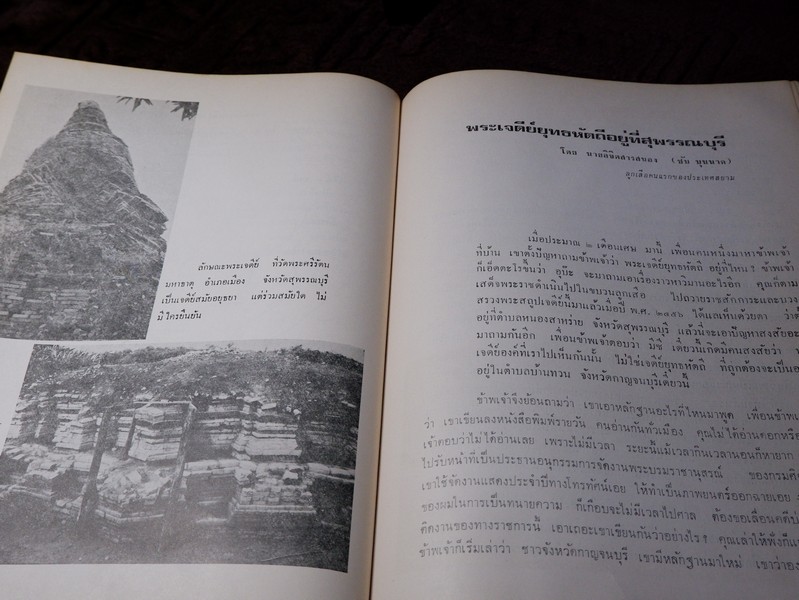 ลักษณะพระเจดีย์ ที่วัดพระศรีรัตน
มหาธาตุ อำเภอเมือง จังหวัดสุพรรณบุรี
เป็นเจดีย์สมัยอยุธยา แต่ร่วมสมัยใด ไม่
มีใครยืนยัน
พระเจดีย์ยุทธหัตถีอยู่ที่สุพรรณบุรี
โดย นายลิขิตสารสนอง (ชัพ บุนนาค)
ลูกเสือคนแรกของประเทศสยาม
เมื่อประมาณ ๒ เดือนเศษ มานี้ เพื่อนคนหนึ่งมาหาข้าพเจ้า
ที่บ้าน เขาตั้งปัญหาถามข้าพเจ้าว่า พระเจดีย์ยุทธหัตถี อยู่ที่ไหน? ข้าพเจ้า
ก็เอ็ดตะโรขึ้นว่า อุบ๊ะ จะมาถามเอาเรื่องราวหาวิมานอะไรอีก คุณก็ตาม
เสด็จพระราชดำเนินไปในขบวนลูกเสือ ไปถวายราชสักการะและบวง
สรวงพระสถูปเจดีย์นี้มาแล้วเมื่อปี พ.ศ. ๒๔๕๖ ได้แลเห็นด้วยตา ว่า
อยู่ที่ตำบลหนองสาหร่าย จังหวัดสุพรรณบุรี แล้วนี่จะเอาปัญหาสงสัยอะ
มาถามกันอีก เพื่อนข้าพเจ้าตอบว่า มีซี เดี๋ยวนี้เกิดมีคนสงสัยว่า
เจดีย์องค์ที่เราไปเห็นกันนั้น ไม่ใช่เจดีย์ยุทธหัตถี ที่ถูกต้องจะเป็นอ
อยู่ในตำบลบ้านทวน จังหวัดกาญจนบุรีเดี๋ยวนี้
ข้าพเจ้าจึงย้อนถามว่า เขาเอาหลักฐานอะไรที่ไหนมาพูด เพื่อนข้าพเ
ว่า เขาเขียนลงหนังสือพิมพ์รายวัน คนอ่านกันทั่วเมือง คุณไม่ได้อ่านดอกหรือ
เจ้าตอบว่าไม่ได้อ่านเลย เพราะไม่มีเวลา ระยะนี้แม้เวลากินเวลานอนก็หายาก
ไปรับหน้าที่เป็นประธานอนุกรรมการจัดงานพระบรมราชานุสรณ์ ของกรมศิ
เขาใช้จัดงานแสดงประจำปีทางโทรทัศน์เอย ให้ทำเป็นภาพยนตร์ออกฉายเอย
ของผมในการเป็นทนายความ ก็เกือบจะไม่มีเวลาไปศาล ต้องขอเลื่อนคดีบ่
คิดงานของทางราชการนี้ เอาเถอะเขาเขียนกันว่าอย่างไร? คุณเล่าให้ฟังก็แ
ข้าพเจ้าก็เริ่มเล่าว่า ชาวจังหวัดกาญจนบุรี เขามีหลักฐานมาใหม่ เขาว่าอง